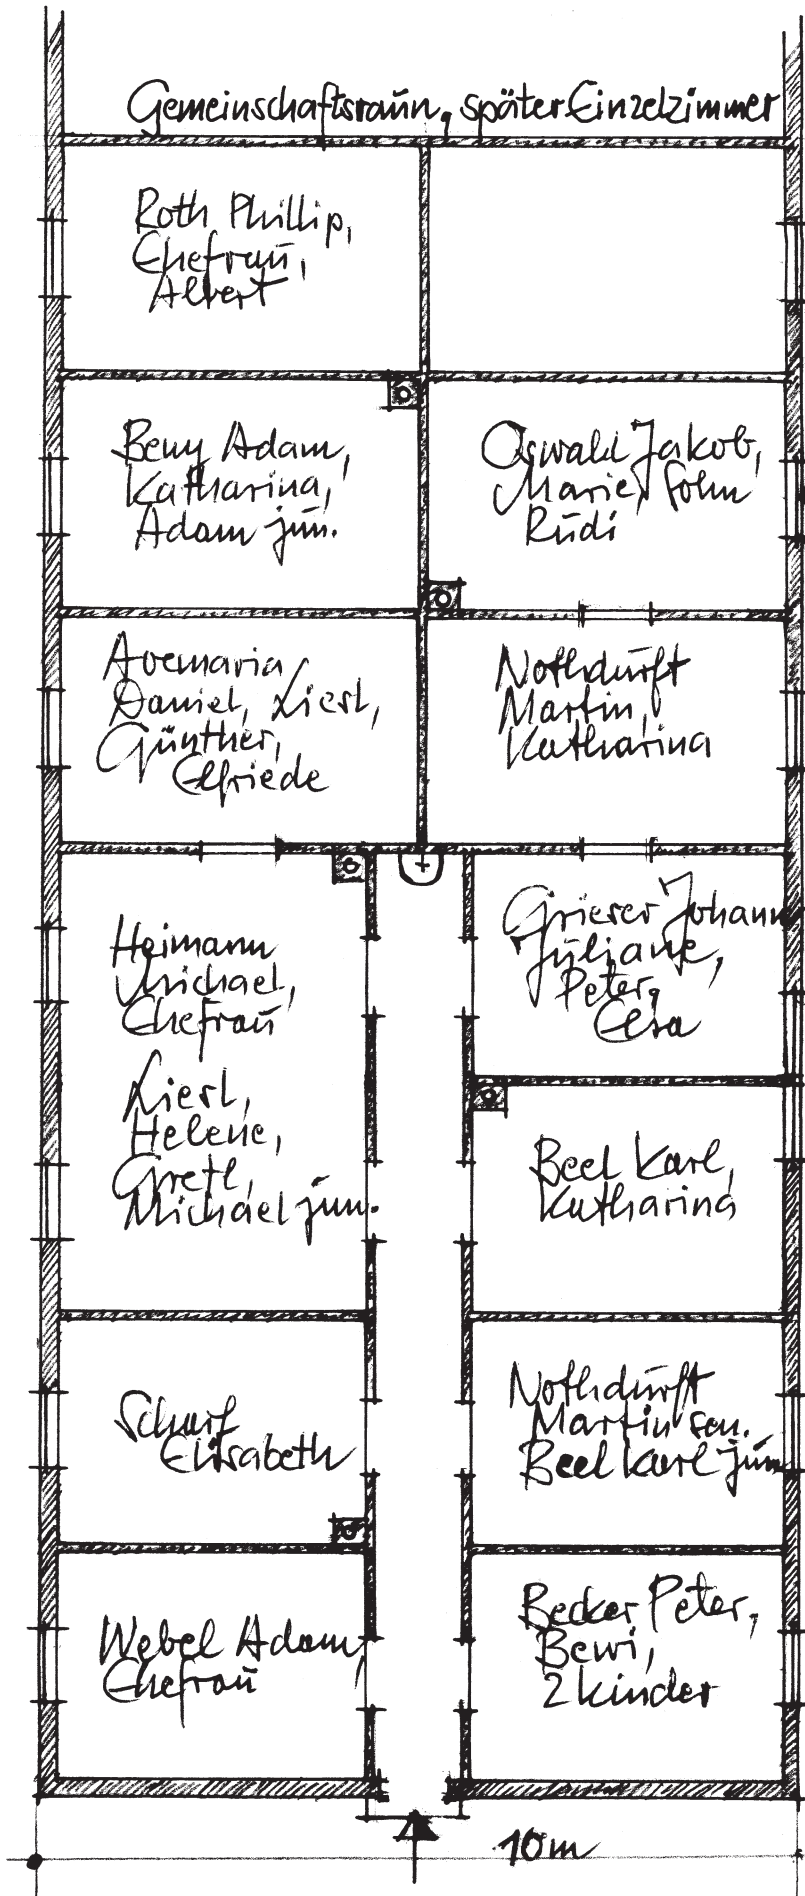 Gemeinschaftsraum, später Einzelzimmer
Roth Phillip,
Ehefrau,
Albert
Beny Adam,
Katharina,
Adam jun.
Oswald Jakob,
Marie, Sohn
Rudi
Avemaria
Daniel, Liesl,
Günther,
Elfriede
Nothdurft
Martin,
Katharina
Heimann
Michael,
Ehefrau
Liesl,
Helene,
Gretl,
Michael jun.
Grieser Johann
Juliane,
Peter,
Elsa
Beel Karl,
Katharina
Scharf
Elisabeth
Nothdurft
Martin sen.
Beel Karl jun
Webel Adam,
Ehefrau
Becker Peter,
Bewi,
2 Kinder
10m